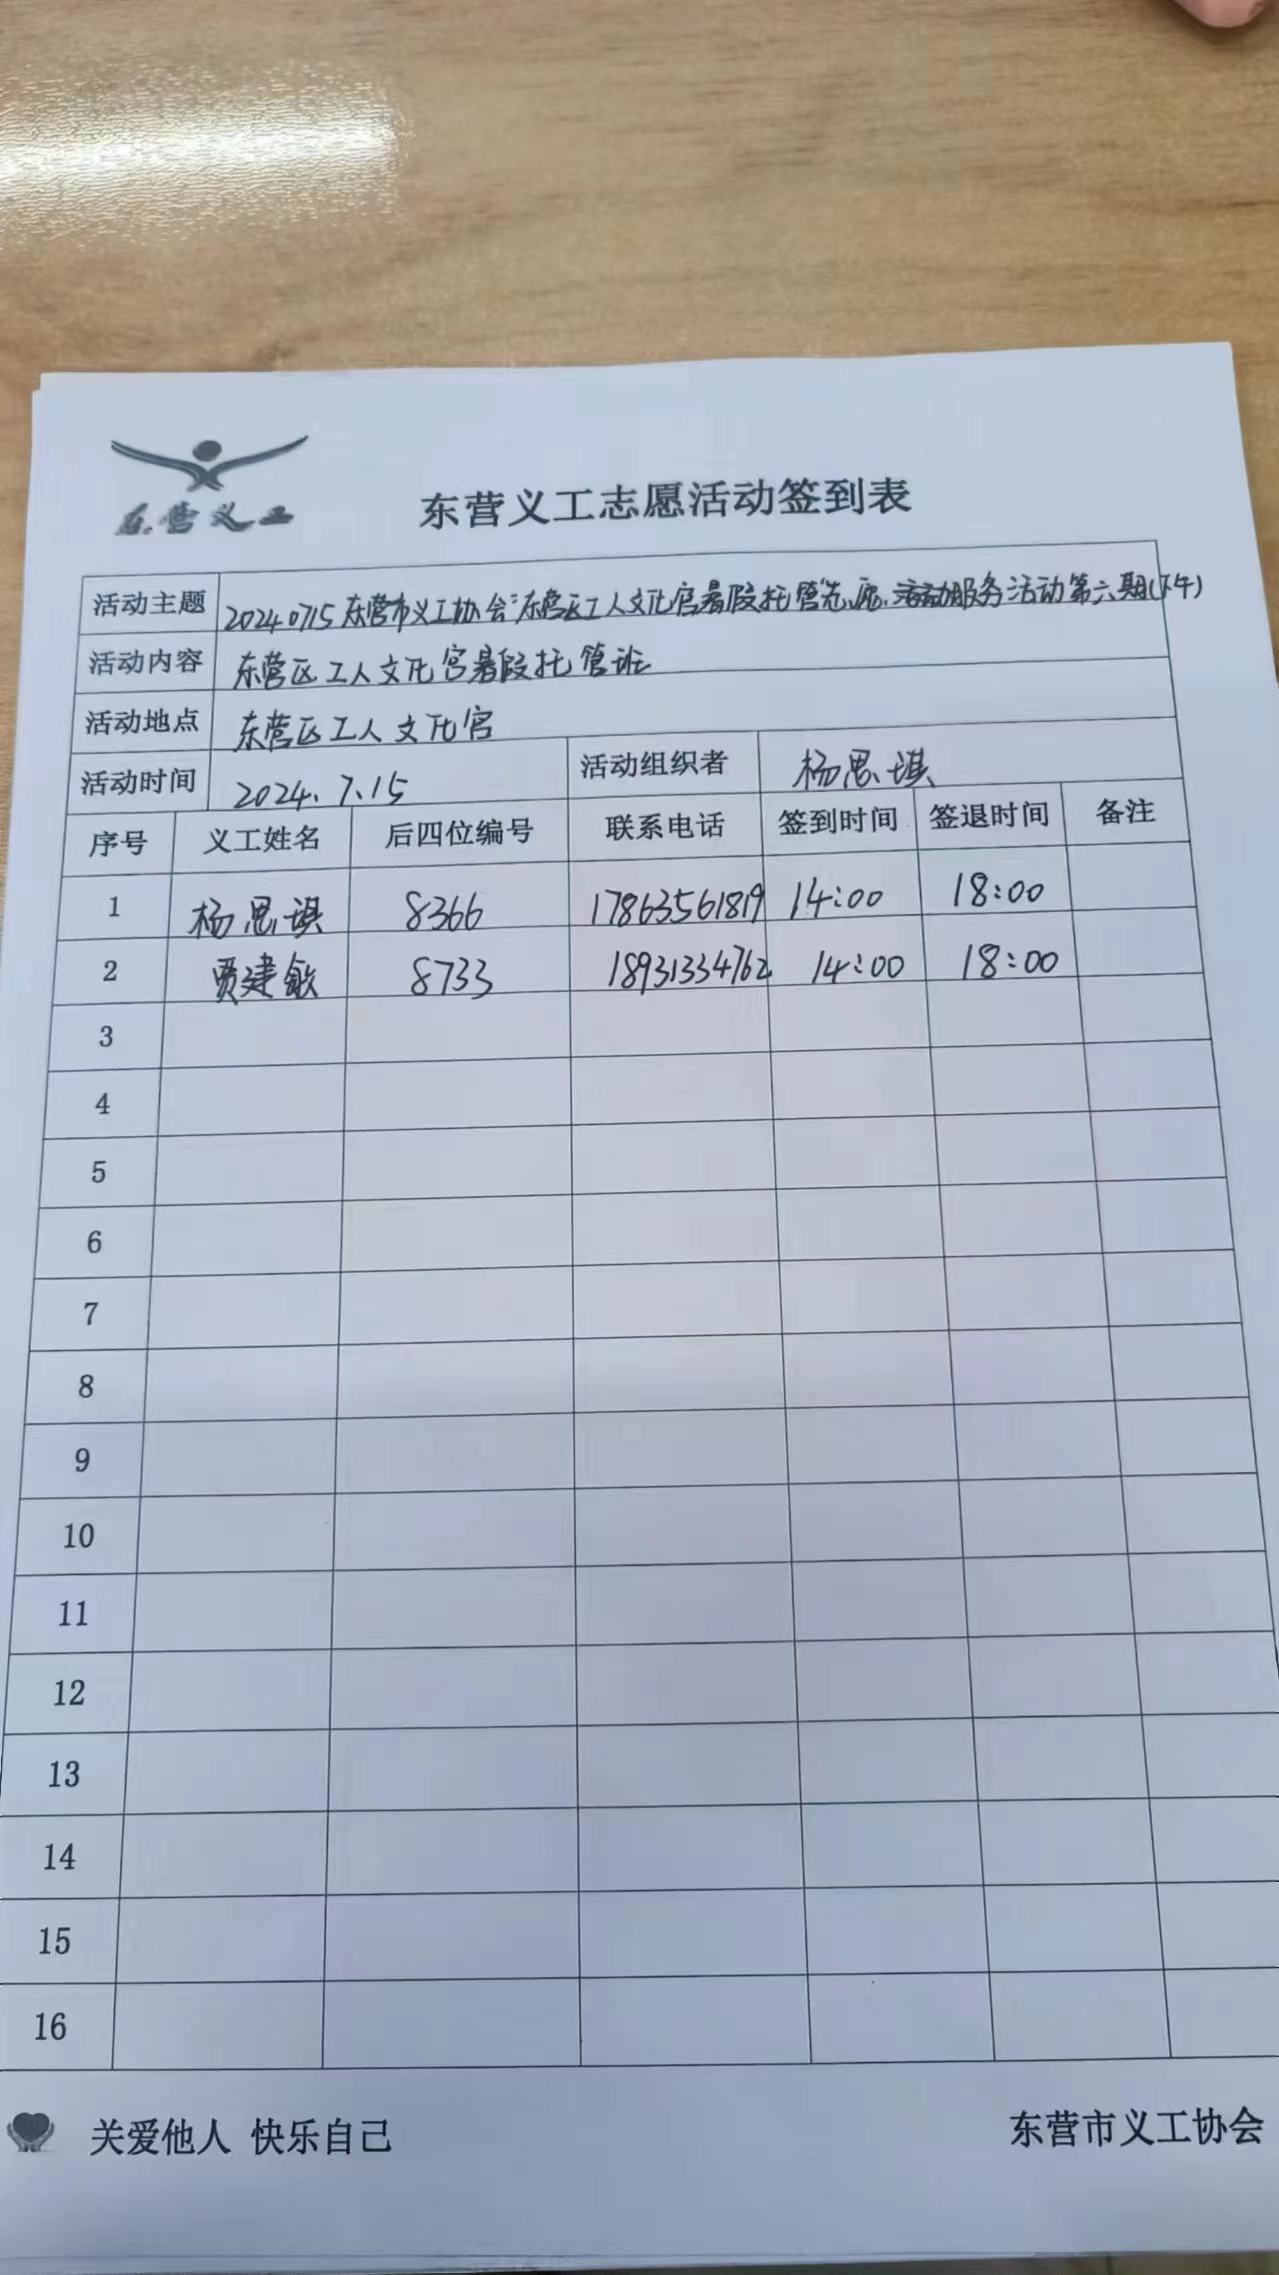 东营义工
东营义工志愿活动签到表
活动主题 20240715东营市义工协会"东营区工人文化宫暑假托管志愿活动服务活动第六期(下午)
活动内容 东营区工人文化宫暑假托管班
活动地点 东营区工人文化宫
活动时间 2024.7.15 活动组织者 杨思琪
序号 义工姓名 后四位编号 联系电话 签到时间 签退时间 备注
1 杨思琪 8366 17863561819 14:00 18:00
2 贾建敏 8733 18931334762 14:00 18:00
3
4
5
6
7
8
9
10
11
12
13
14
15
16
关爱他人 快乐自己 东营市义工协会